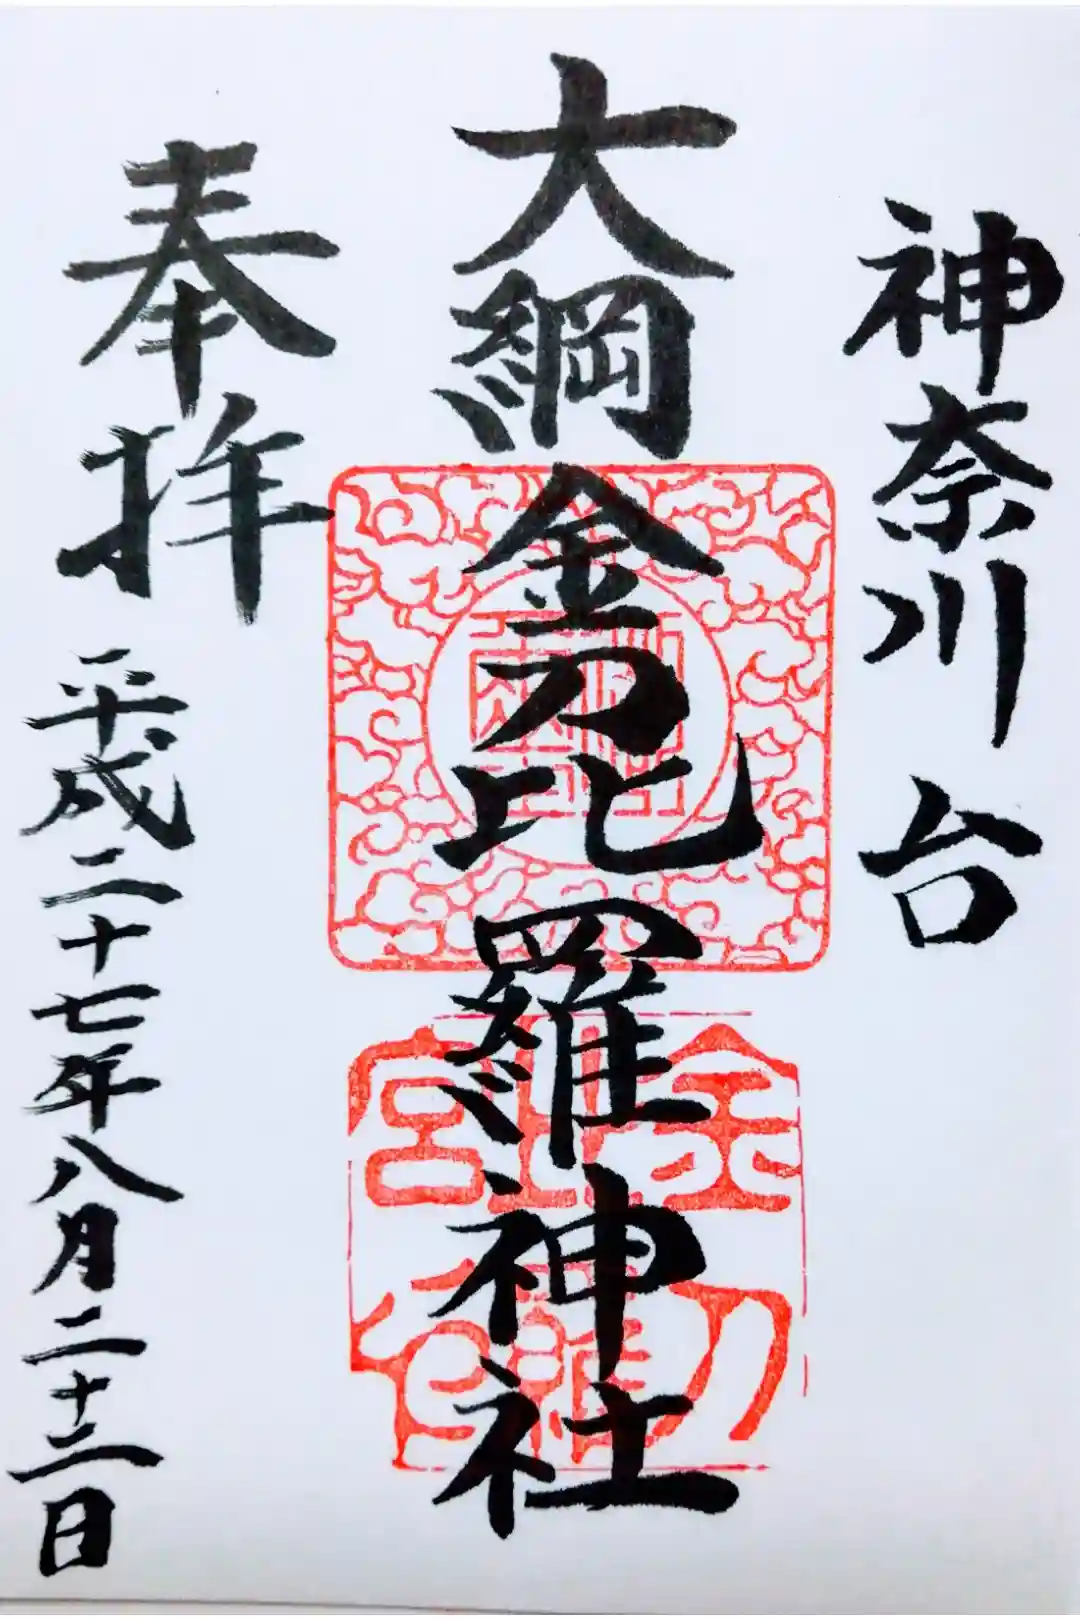 神奈川 台
大綱金刀比羅神社
奉拝
平成二十七年八月二十三日